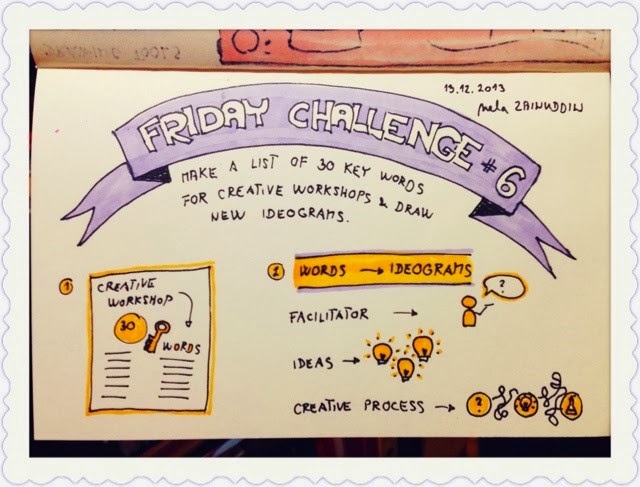 DRAWING TOOLS
13.12.2013
mela ZAINUDDIN
FRIDAY CHALLENGE #6
MAKE A LIST OF 30 KEY WORDS
FOR CREATIVE WORKSHOPS & DRAW
NEW IDEOGRAMS.
1
CREATIVE
WORKSHOP
30
WORDS
2
WORDS → IDEOGRAMS
FACILITATOR →
?
IDEAS →
CREATIVE PROCESS →
?